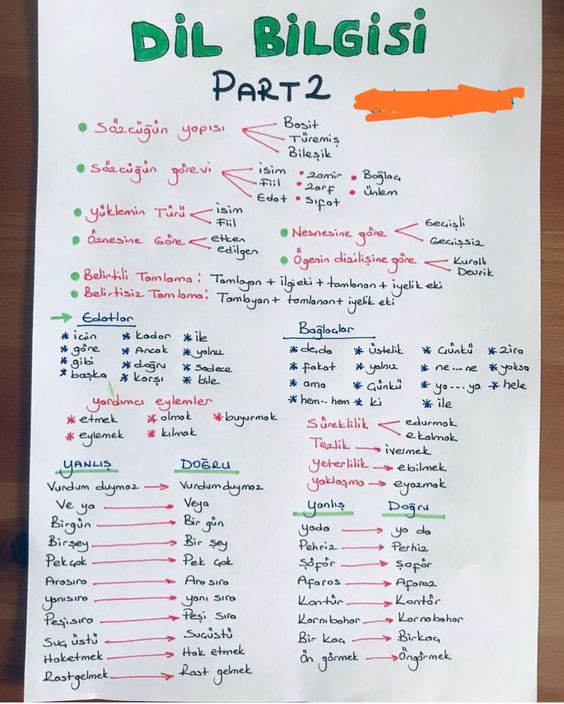 DİL BİLGİSİ
PART 2
Sözcüğün yapısı
Basit
Türemiş
Bileşik
Sözcüğün görevi
isim
Fiil
Edat
zamir
zarf
Sıfat
Bağlaç
Ünlem
Yüklemin Türü
isim
Fiil
Öznesine Göre
etken
edilgen
Nesnesine göre
Geçişli
Geçişsiz
Ögenin dizilişine göre
Kurallı
Devrik
Belirtili Tamlama: Tamlayan + ilgi eki + tamlanan + iyelik eki
Belirtisiz Tamlama: Tamlayan + tamlanan + iyelik eki
Edatlar
* için * kadar * ile
* göre * Ancak * yalnız
* gibi * doğru * sadece
* başka * karşı * bile
Bağlaçlar
* de, da * üstelik * Çünkü * zira
* fakat * yalnız * ne ... ne * yoksa
* ama * Çünkü * ya --- ya * hele
* hem -- hem * ki * ile
yardımcı eylemler
* etmek * olmak * buyurmak
* eylemek * kılmak
Süreklilik
edurmak
ekalmak
Tezlik → ivermek
Yeterlilik → ebilmek
Yaklaşma → eyazmak
YANLIŞ DOĞRU
Vurdum duymaz → Vurdumduymaz
Ve ya → Veya
Birgün → Bir gün
Birşey → Bir şey
Pekçok → Pek çok
Arasıra → Ara sıra
yanısıra → yanı sıra
Peşisıra → Peşi sıra
Suç üstü → Suçüstü
Haketmek → Hak etmek
Rastgelmek → Rast gelmek
Yanlış Doğru
yada → ya da
Pehriz → Perhiz
Şöför → Şoför
Afaros → Aforoz
Kantür → Kontör
Karnıbahar → Karnabahar
Bir kaç → Birkaç
Ön görmek → Öngörmek